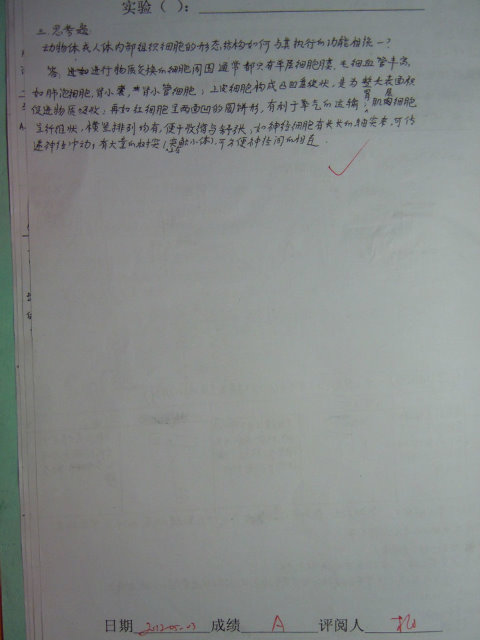 实验（ ）：
三.思考题
动物体或人体内部组织细胞的形态结构如何与其执行的功能相统一？
答：进行物质交换的细胞周围通常都只有单层细胞膜，毛细血管丰富，
如肺泡细胞，肾小囊，肾小管细胞；上皮细胞构成凸凹直皱状，是为 增大表面积
促进物质吸收；再如红细胞呈两面凹的圆饼形，有利于氧气的运输，肌肉细胞
呈行阻状，横竖排列均有，便于收缩与舒张；如神经细胞有长长的轴突来，可传
递神经冲动；有大量的树突（突触小体），可方便神经间的相连．
日期 2012.05.23 成绩 A 评阅人